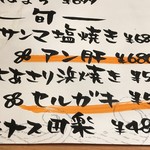 一旬一
サンマ塩焼き ¥68
アン肝 ¥680
はまぐり浜焼き ¥5
セルガキ ¥5
ナス田楽 ¥48